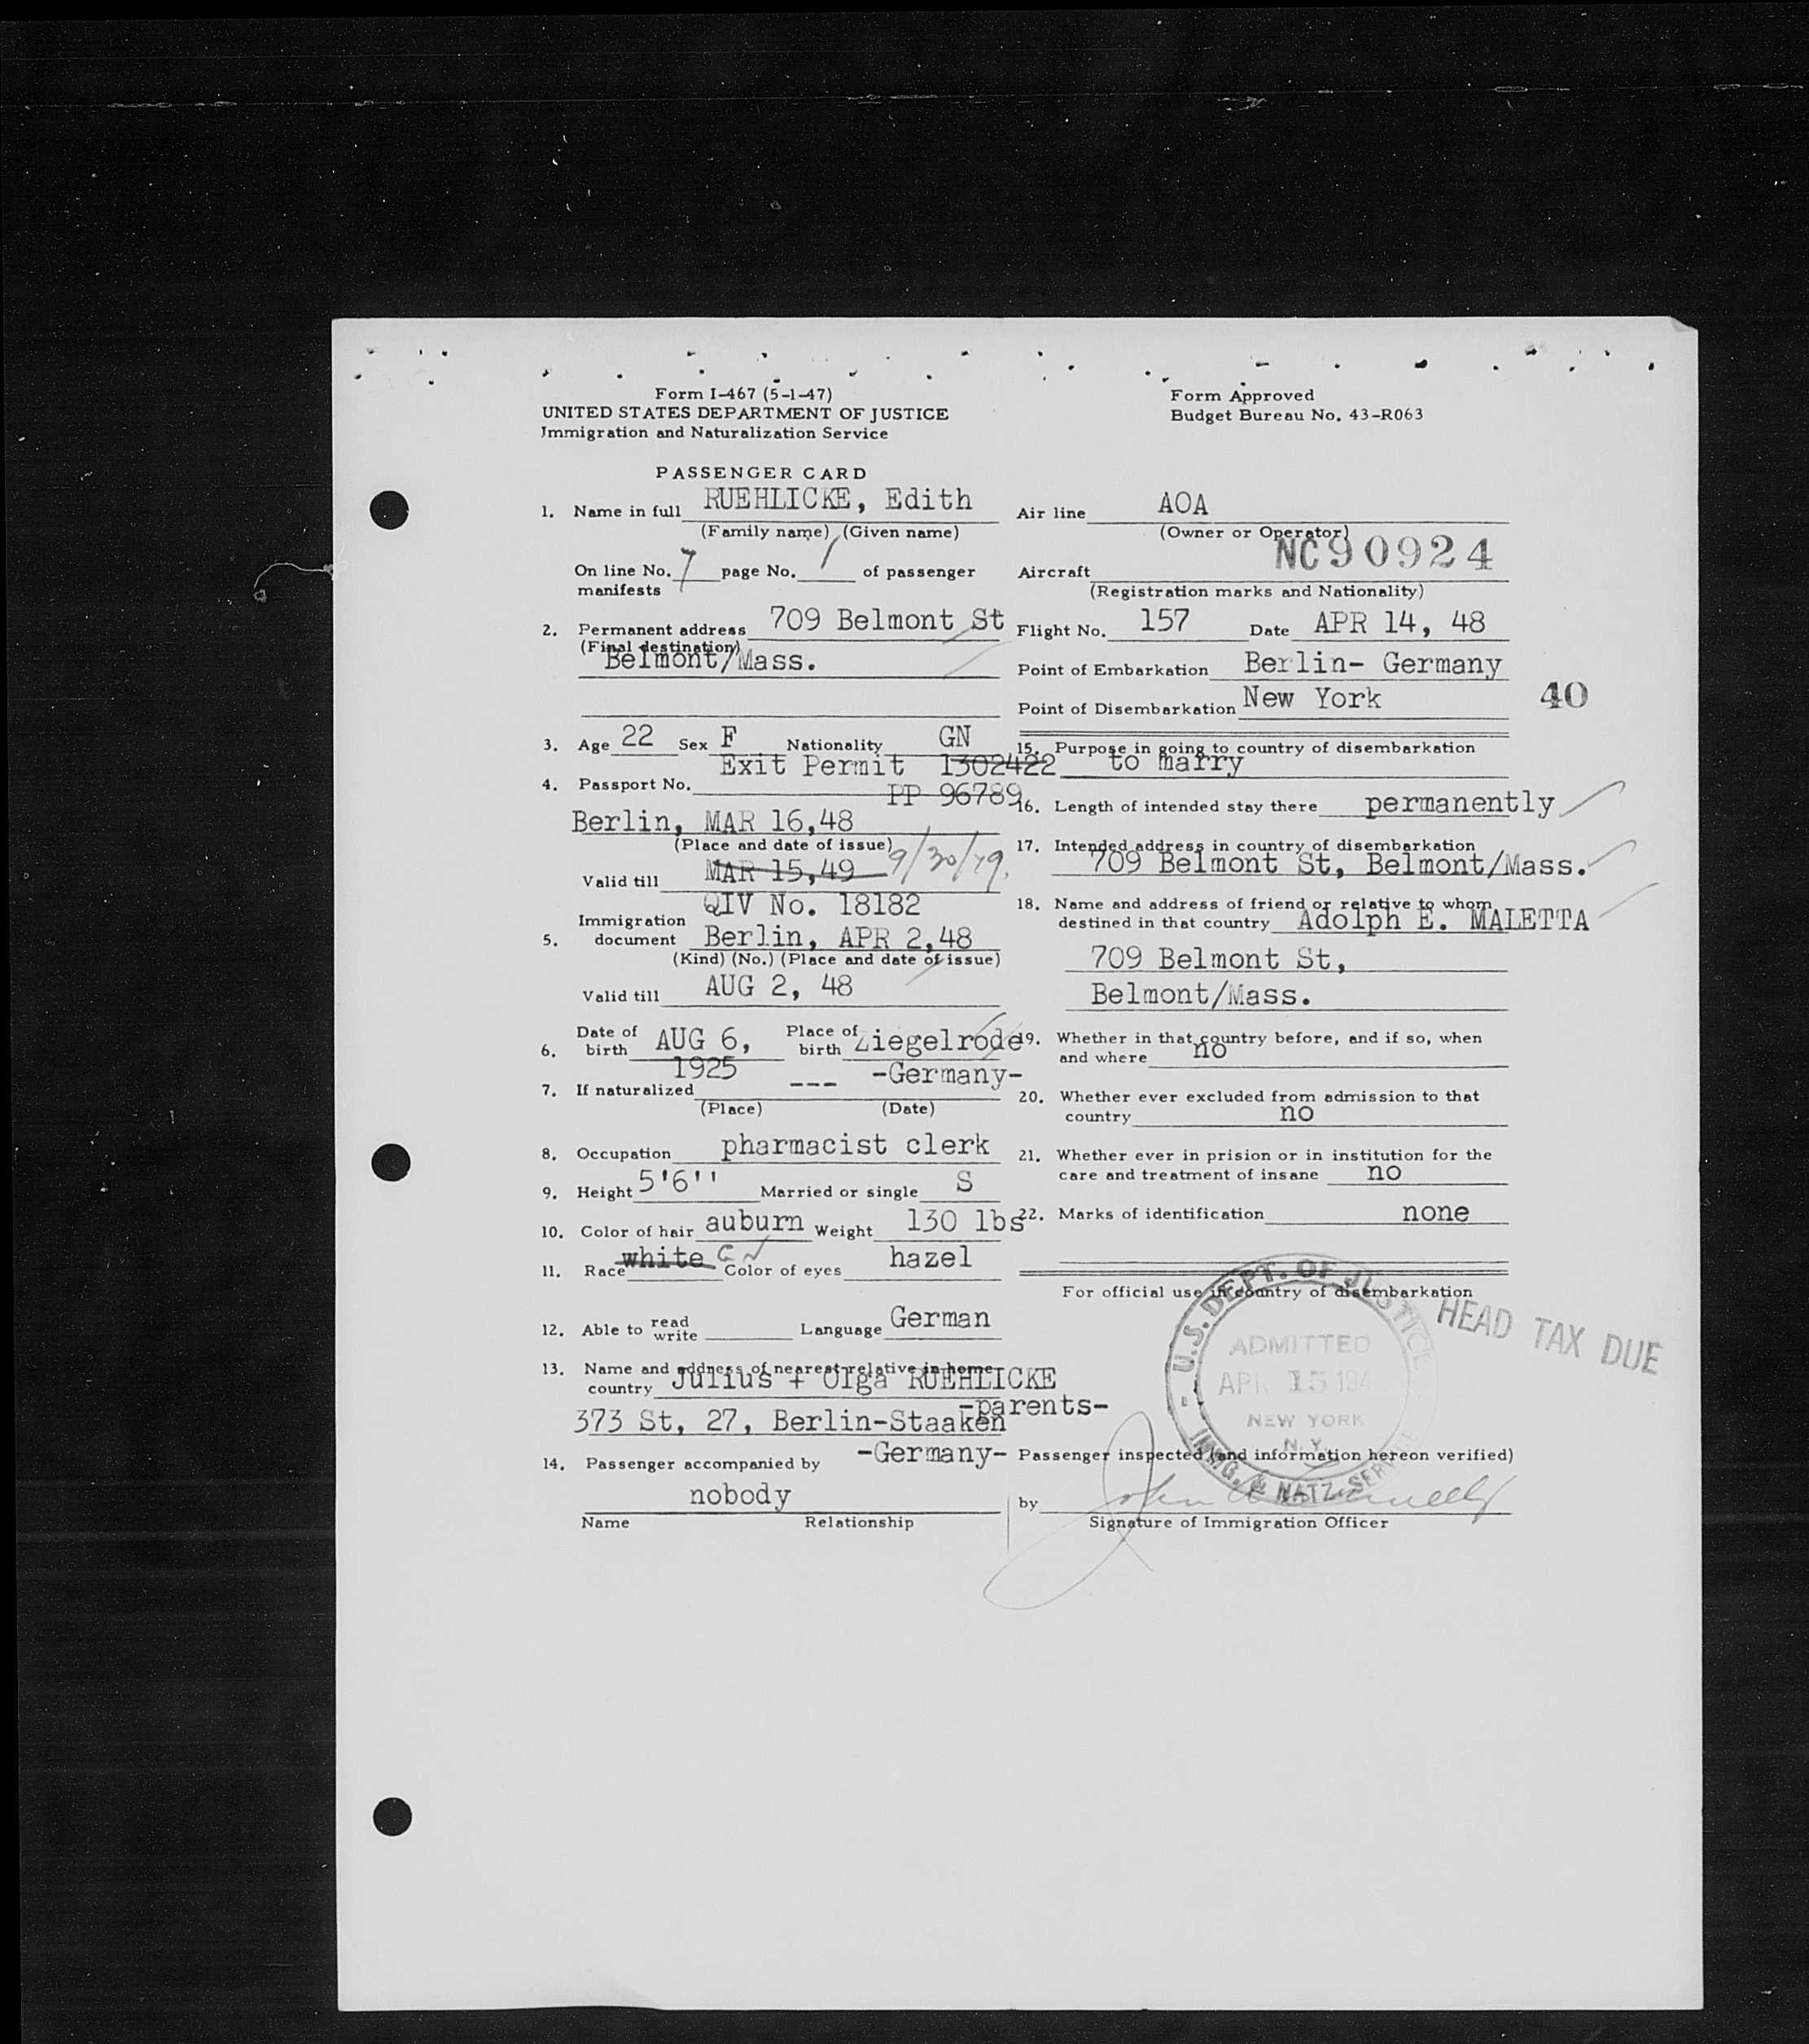 Form I-467 (5-1-47)
UNITED STATES DEPARTMENT OF JUSTICE
Immigration and Naturalization Service
Form Approved
Budget Bureau No. 43-R063
PASSENGER CARD
1. Name in full RUEHLICKE, Edith
(Family name) (Given name)
On line No. 7 page No. 1 of passenger
manifests
2. Permanent address 709 Belmont St
(Final destination)
Belmont/Mass.
3. Age 22 Sex F Nationality GN
Exit Permit 1302422
4. Passport No. PP 96789
Berlin, MAR 16,48
(Place and date of issue)
Valid till MAR 15,49 9/30/49.
QIV No. 18182
5. Immigration document Berlin, APR 2,48
(Kind) (No.) (Place and date of issue)
Valid till AUG 2, 48
6. Date of birth AUG 6, 1925 Place of birth Ziegelrode
-Germany-
7. If naturalized ---
(Place) (Date)
8. Occupation pharmacist clerk
9. Height 5'6'' Married or single S
10. Color of hair auburn Weight 130 lbs
11. Race white GN Color of eyes hazel
12. Able to read write Language German
13. Name and address of nearest relative in home
country Julius + Olga RUEHLICKE
-parents-
373 St, 27, Berlin-Staaken
-Germany-
14. Passenger accompanied by
nobody
Name Relationship
Air line AOA
(Owner or Operator)
Aircraft NC90924
(Registration marks and Nationality)
Flight No. 157 Date APR 14, 48
Point of Embarkation Berlin- Germany
Point of Disembarkation New York
40
15. Purpose in going to country of disembarkation
to marry
16. Length of intended stay there permanently
17. Intended address in country of disembarkation
709 Belmont St, Belmont/Mass.
18. Name and address of friend or relative to whom
destined in that country Adolph E. MALETTA
709 Belmont St,
Belmont/Mass.
19. Whether in that country before, and if so, when
and where no
20. Whether ever excluded from admission to that
country no
21. Whether ever in prision or in institution for the
care and treatment of insane no
22. Marks of identification none
For official use in country of disembarkation
HEAD TAX DUE
U.S. DEPT. OF JUSTICE
ADMITTED
APR 15 194
NEW YORK
N.Y.
IMMG. & NATZ. SERVICE
Passenger inspected (and information hereon verified)
by John
Signature of Immigration Officer